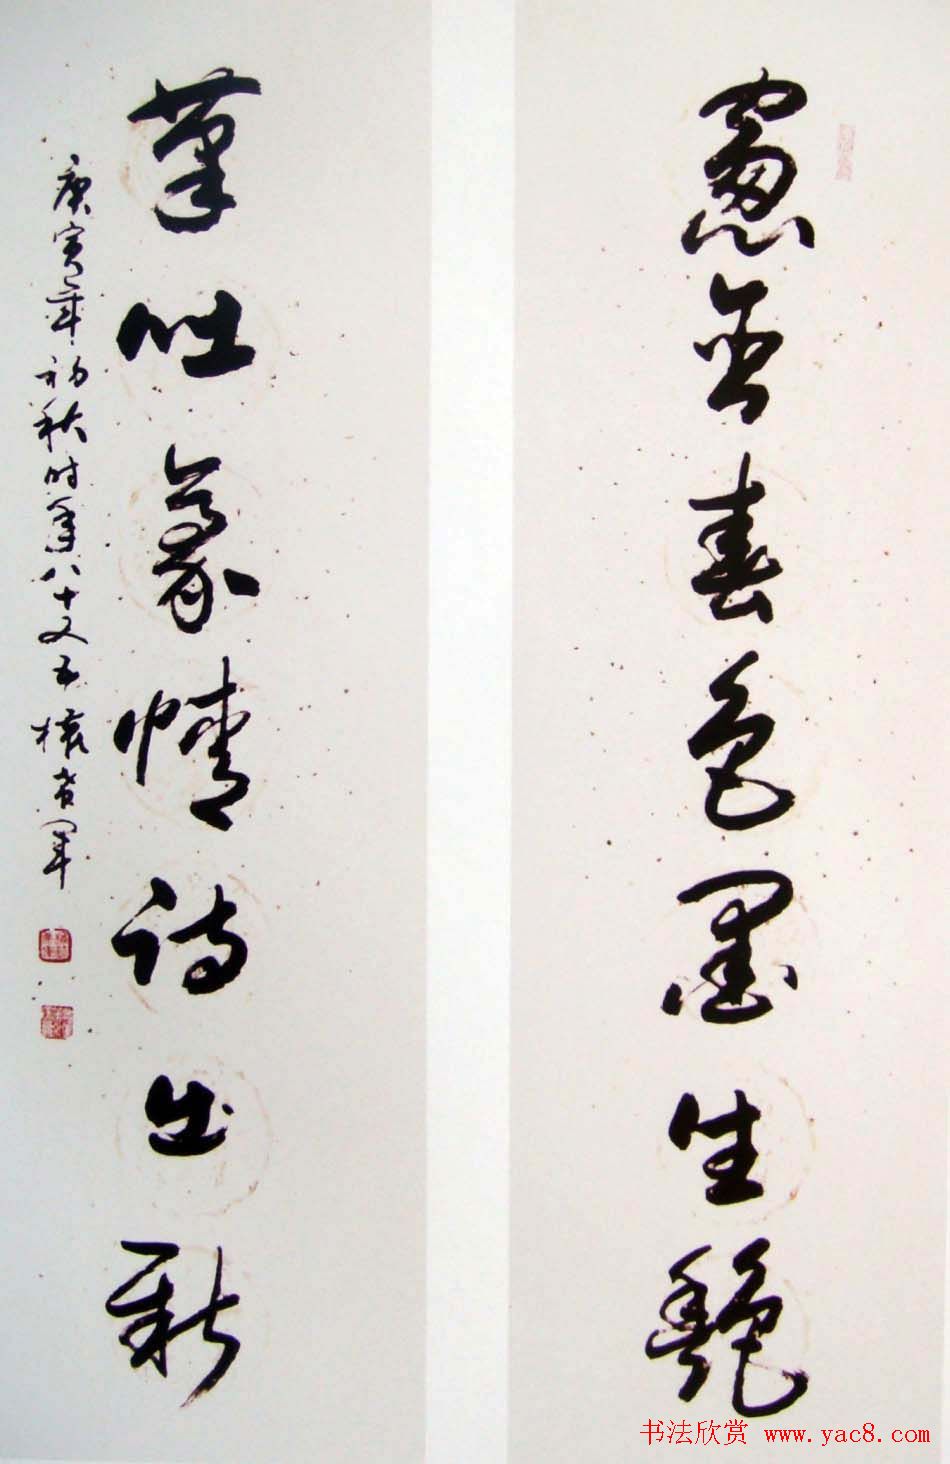 窗含春色墨生艳
笔吐豪情诗出新
庚寅年初秋时年八十又五
书法欣赏 www.yac8.com